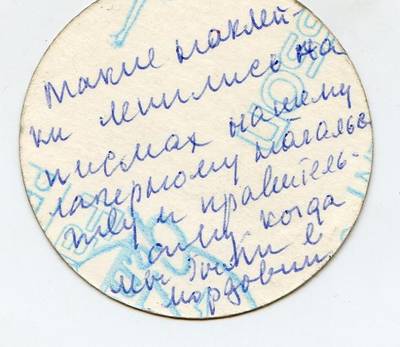 Такие наклей-
ки лепились на
письмах нашему
лагерному начальс
тву и правитель-
ству когда
мы были в
мордовии